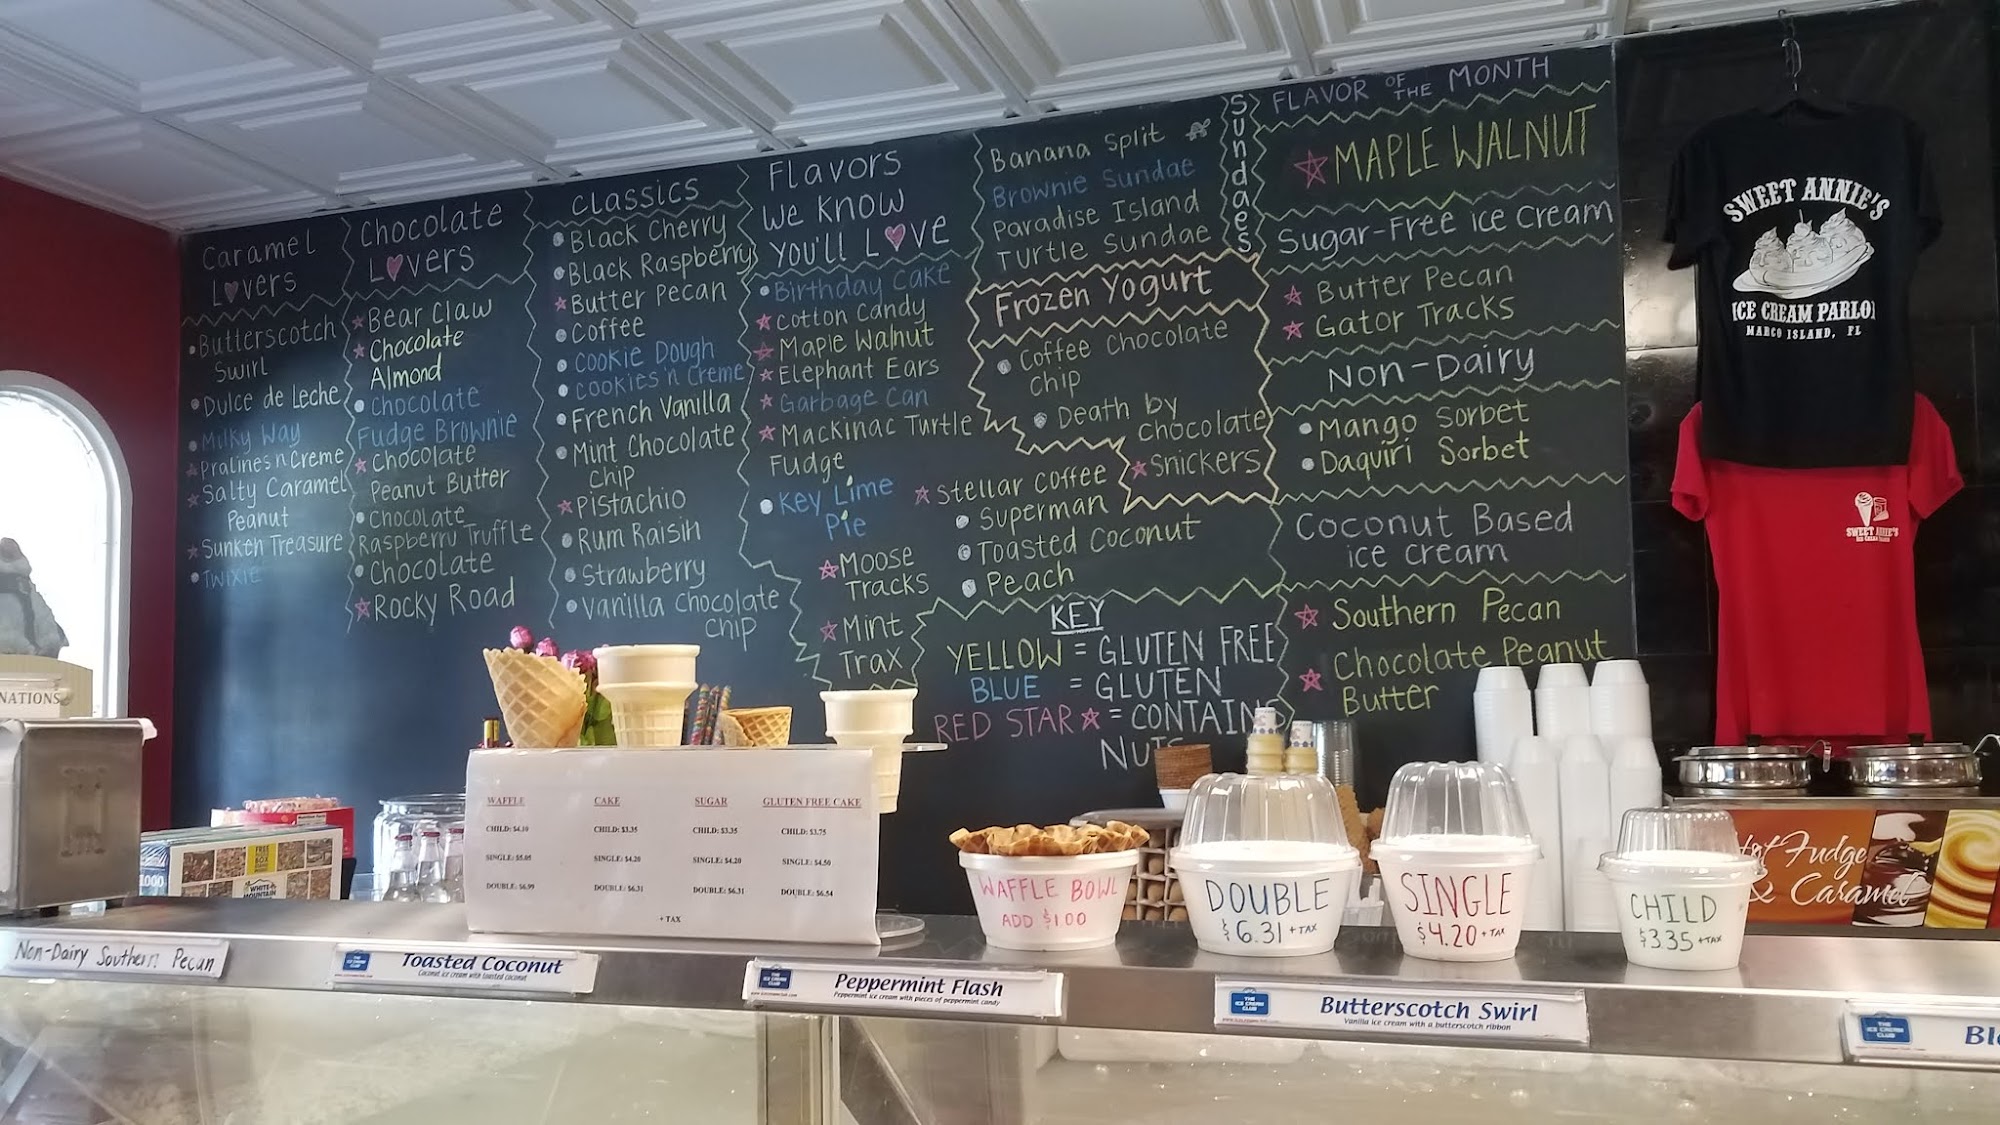 Caramel
Lovers
Butterscotch
Swirl
Dulce de Leche
Milky Way
Pralines n Creme
Salty Caramel
Peanut
Sunken Treasure
Twixie
Chocolate
Lovers
Bear Claw
Chocolate
Almond
Chocolate
Fudge Brownie
Chocolate
Peanut Butter
Chocolate
Raspberry Truffle
Chocolate
Rocky Road
Classics
Black Cherry
Black Raspberry
Butter Pecan
Coffee
Cookie Dough
Cookies 'n Creme
French Vanilla
Mint Chocolate
Chip
Pistachio
Rum Raisin
Strawberry
Vanilla Chocolate
Chip
Flavors
We Know
You'll Love
Birthday Cake
Cotton Candy
Maple Walnut
Elephant Ears
Garbage Can
Mackinac Turtle
Fudge
Key Lime
Pie
Moose
Tracks
Mint
Trax
Stellar Coffee
Superman
Toasted Coconut
Peach
Sundaes
Banana Split
Brownie Sundae
Paradise Island
Turtle Sundae
Frozen Yogurt
Coffee Chocolate
Chip
Death by
Chocolate
Snickers
KEY
YELLOW = GLUTEN FREE
BLUE = GLUTEN
RED STAR = CONTAINS
NUTS
FLAVOR OF THE MONTH
MAPLE WALNUT
Sugar-Free Ice Cream
Butter Pecan
Gator Tracks
Non-Dairy
Mango Sorbet
Daquiri Sorbet
Coconut Based
ice cream
Southern Pecan
Chocolate Peanut
Butter
SWEET ANNIE'S
ICE CREAM PARLO
MARCO ISLAND, FL
SWEET ANNIE'S
NATIONS
1000
WHITE MOUNTAIN
WAFFLE CAKE SUGAR GLUTEN FREE CAKE
CHILD: $4.10 CHILD: $3.35 CHILD: $3.35 CHILD: $3.75
SINGLE: $5.05 SINGLE: $4.20 SINGLE: $4.20 SINGLE: $4.50
DOUBLE: $6.99 DOUBLE: $6.31 DOUBLE: $6.31 DOUBLE: $6.54
+ TAX
WAFFLE BOWL
ADD $1.00
DOUBLE
$6.31 +TAX
SINGLE
$4.20 +TAX
CHILD
$3.35 +TAX
Hot Fudge
& Caramel
Non-Dairy Southern Pecan
THE ICE CREAM CLUB
Toasted Coconut
Coconut ice cream with toasted coconut
THE ICE CREAM CLUB
Peppermint Flash
Peppermint ice cream with pieces of peppermint candy
THE ICE CREAM CLUB
Butterscotch Swirl
Vanilla ice cream with a butterscotch ribbon
THE ICE CREAM CLUB
Bl